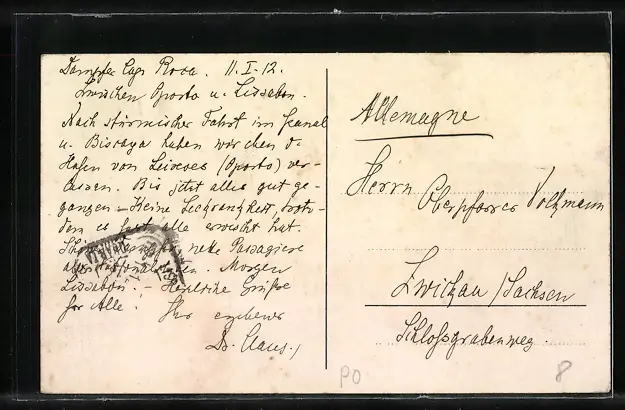 Dampfer Cap Roca. 11.I.12.
Zwischen Oporto u. Lissabon.
Nach stürmischer Fahrt im Kanal
u. Biscaya haben wir eben d.
Hafen von Leixoes (Oporto) ver-
lassen. Bis jetzt alles gut ge-
gangen – Keine Seekrankheit, trotz-
dem es fast alle erwischt hat.
nette Passagiere
Morgen
Lissabon. – Herzliche Grüsse
für Alle! Ihr ergebener
Dr. Claus.
Allemagne
Herrn
Oberpfarrer Volkmann
Zwickau / Sachsen
Schloßgrabenweg.
PO
8